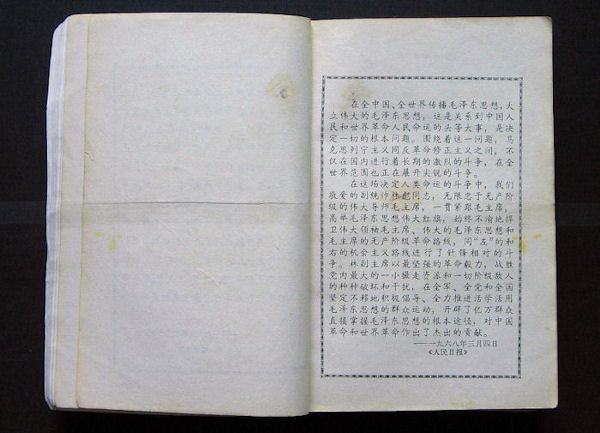 在全中国、全世界传播毛泽东思想，大
立伟大的毛泽东思想，这是关系到中国人
民和世界革命人民命运的头等大事，是决
定一切的根本问题。围绕着这一问题，马
克思列宁主义同反革命修正主义之间，不
仅在国内进行着长期的激烈的斗争，在全
世界范围也正在展开尖锐的斗争。
在这场决定人类命运的斗争中，我们
敬爱的副统帅林彪同志，无限忠于无产阶
级的伟大导师毛主席，一贯紧跟毛主席，
高举毛泽东思想伟大红旗，始终不渝地捍
卫伟大领袖毛主席、伟大的毛泽东思想和
毛主席的无产阶级革命路线，同“左”的和
右的机会主义路线进行了针锋相对的斗
争。林副主席以最坚强的革命毅力，战胜
党内最大的一小撮走资派和一切阶级敌人
的种种破坏和干扰，在全军、全党和全国
坚定不移地积极倡导、全力推进活学活用
毛泽东思想的群众运动，开辟了亿万群众
直接掌握毛泽东思想的根本途径，对中国
革命和世界革命作出了杰出的贡献。
——一九六八年三月四日
《人民日报》